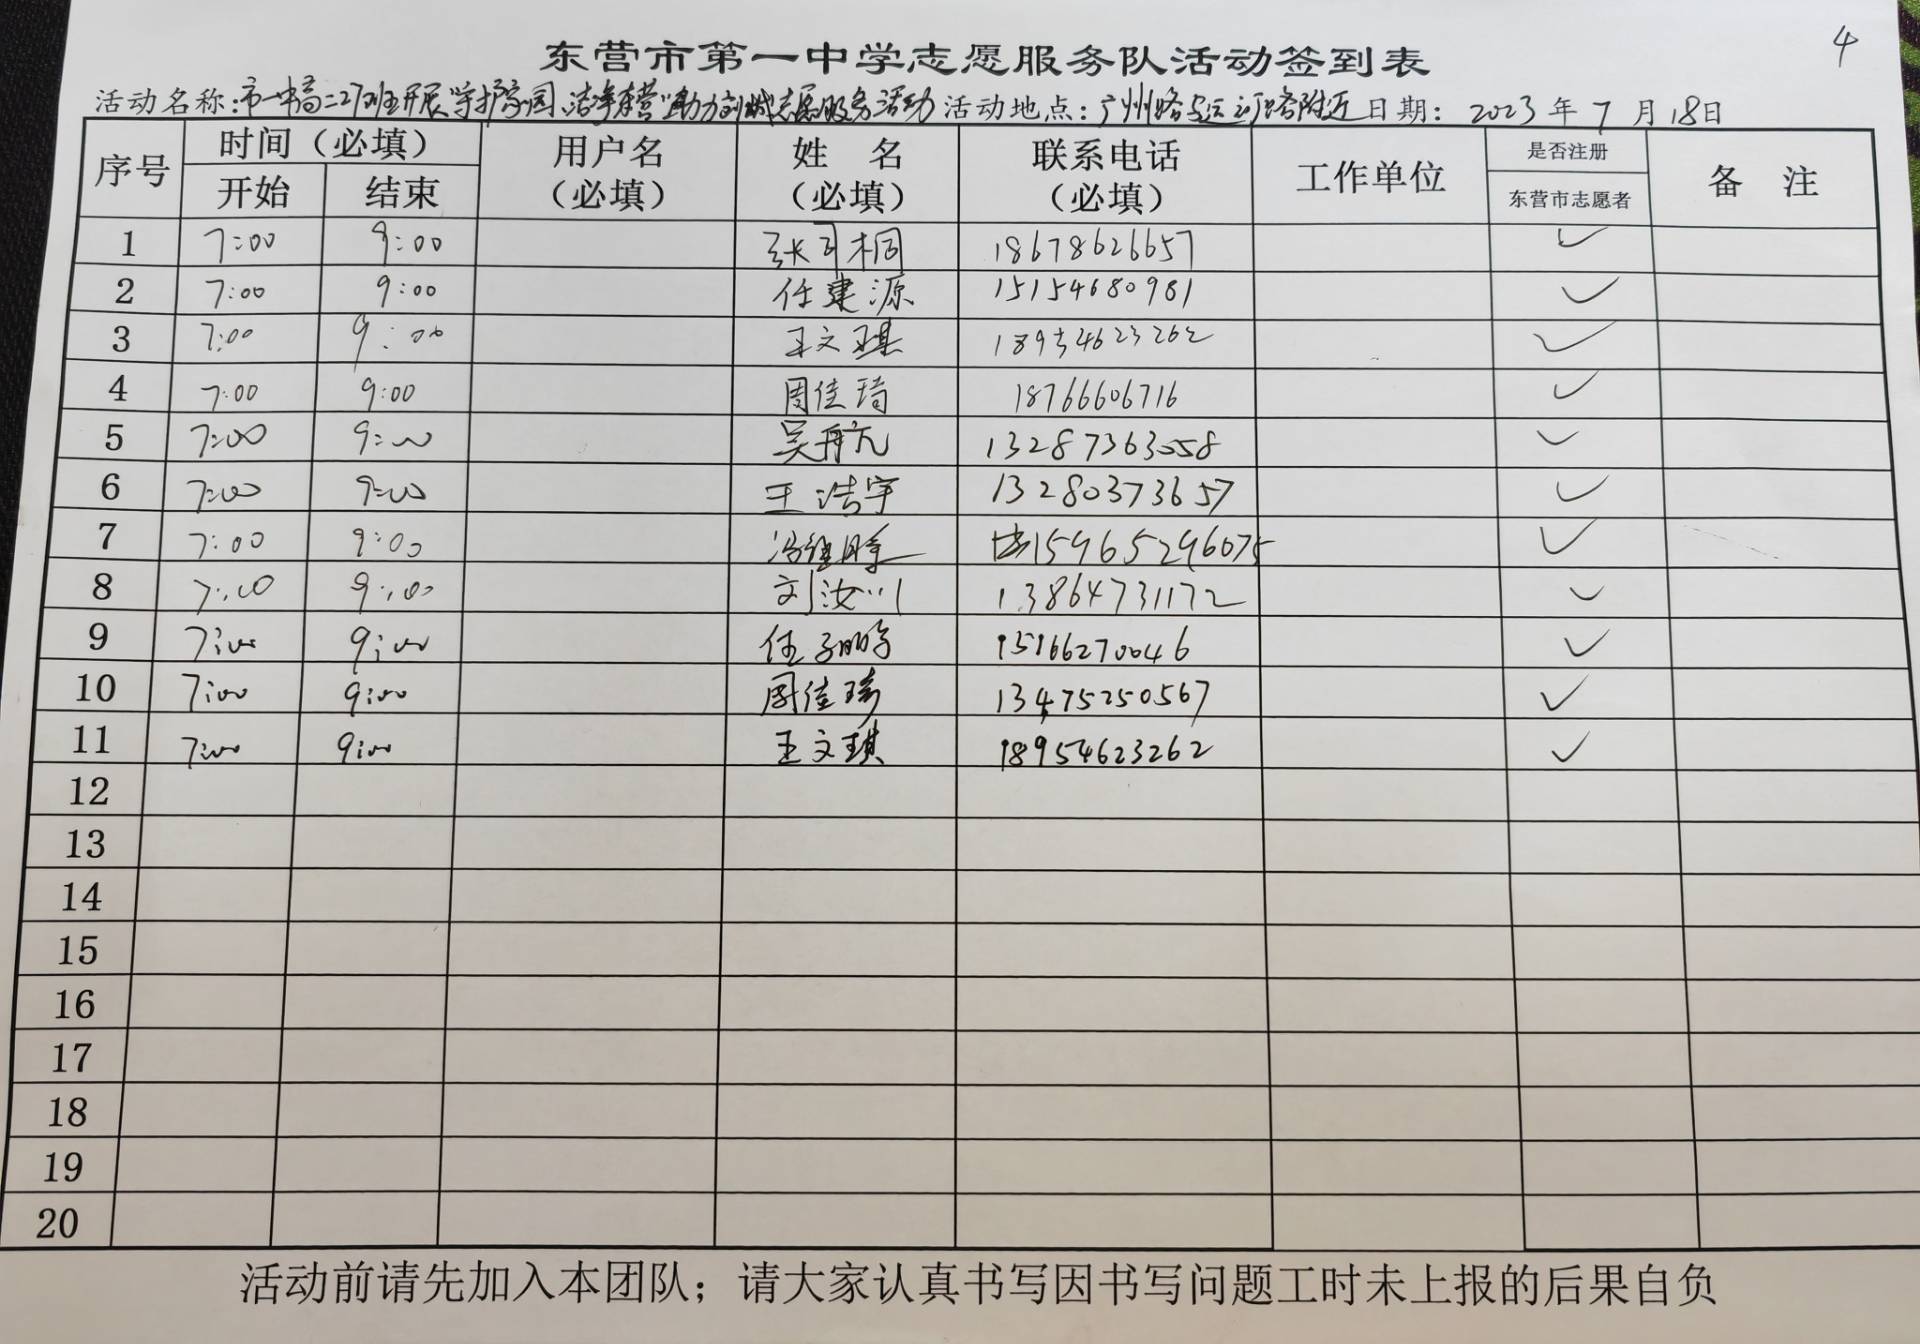 4
东营市第一中学志愿服务队活动签到表
活动名称：市一中高二27班开展"守护家园、洁净东营"助力创城志愿服务活动 活动地点：广州路与运河路附近 日期：2023年7月18日
序号 时间（必填） 用户名（必填） 姓名（必填） 联系电话（必填） 工作单位 是否注册 备注
开始 结束 东营市志愿者
1 7:00 9:00 张可桐 18678626657 ✓
2 7:00 9:00 任建源 15154680981 ✓
3 7:00 9:00 王文琪 18954623262 ✓
4 7:00 9:00 周佳琦 18766606716 ✓
5 7:00 9:00 吴冉航 13287363058 ✓
6 7:00 9:00 王浩宇 13280373657 ✓
7 7:00 9:00 15965296075 ✓
8 7:00 9:00 刘汝川 13864731172 ✓
9 7:00 9:00 任子鹏 15166270046 ✓
10 7:00 9:00 周佳琦 13475250567 ✓
11 7:00 9:00 王文琪 18954623262 ✓
12
13
14
15
16
17
18
19
20
活动前请先加入本团队；请大家认真书写因书写问题工时未上报的后果自负